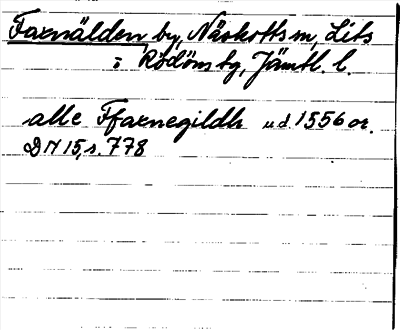 Faxnälden, by, Näskotts sn, Lits
o Rödöns tg, Jämtl. l.
alle Ffaxnegildh u.d. 1556 or.
DN 15, s. 778